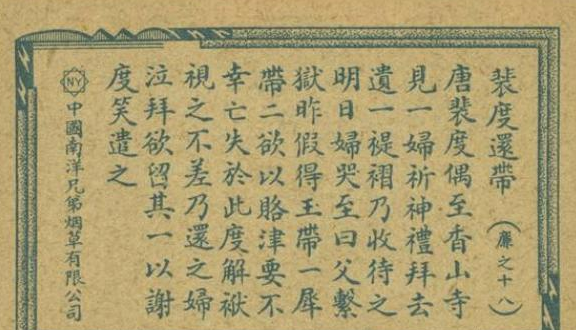 裴度還帶(廉之十八)
唐裴度偶至香山寺
見一婦祈神禮拜去
遺一褆褶乃收待之
明日婦哭至曰父繫
獄昨假得玉帶一犀
帶二欲以賂津要不
幸亡失於此度解袱
視之不差乃還之婦
泣拜欲留其一以謝
度笑遣之
NY 中國南洋兄弟烟草有限公司